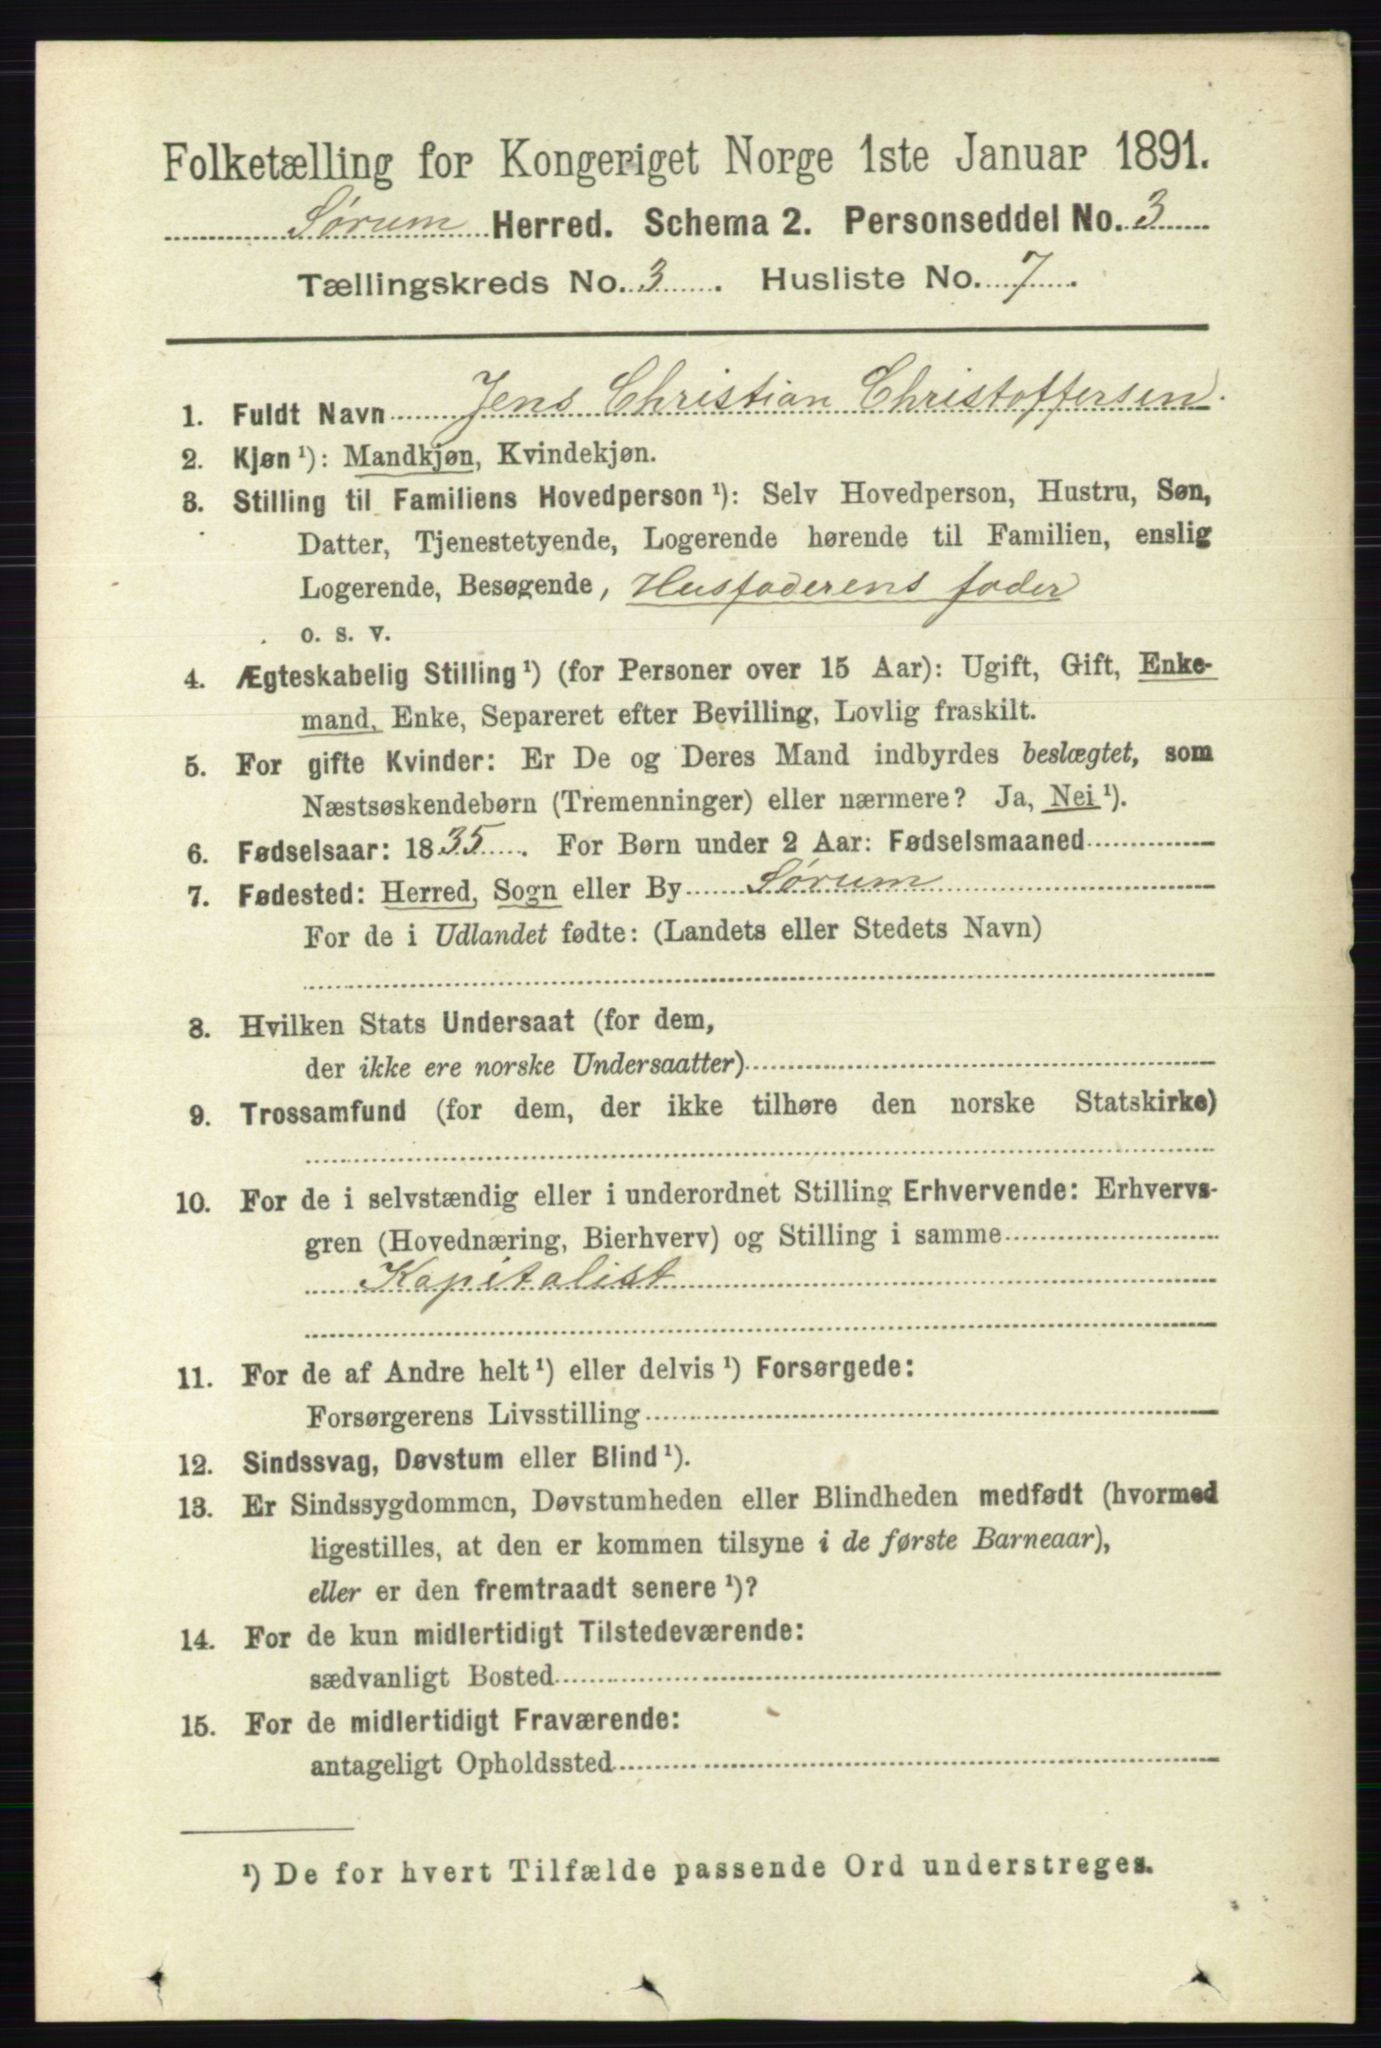 Folketælling for Kongeriget Norge 1ste Januar 1891.
Sørum Herred. Schema 2. Personseddel No. 3
Tællingskreds No. 3. Husliste No. 7.
1. Fuldt Navn Jens Christian Christoffersen.
2. Kjøn¹): Mandkjøn, Kvindekjøn.
3. Stilling til Familiens Hovedperson¹): Selv Hovedperson, Hustru, Søn,
Datter, Tjenestetyende, Logerende hørende til Familien, enslig
Logerende, Besøgende, Husfaderens fader
o. s. v.
4. Ægteskabelig Stilling¹) (for Personer over 15 Aar): Ugift, Gift, Enke-
mand, Enke, Separeret efter Bevilling, Lovlig fraskilt.
5. For gifte Kvinder: Er De og Deres Mand indbyrdes beslægtet, som
Næstsøskendebørn (Tremenninger) eller nærmere? Ja, Nei¹).
6. Fødselsaar: 1835. For Børn under 2 Aar: Fødselsmaaned
7. Fødested: Herred, Sogn eller By Sørum
For de i Udlandet fødte: (Landets eller Stedets Navn)
8. Hvilken Stats Undersaat (for dem,
der ikke ere norske Undersaatter)
9. Trossamfund (for dem, der ikke tilhøre den norske Statskirke)
10. For de i selvstændig eller i underordnet Stilling Erhvervende: Erhvervs-
gren (Hovednæring, Bierhverv) og Stilling i samme
Kapitalist
11. For de af Andre helt¹) eller delvis¹) Forsørgede:
Forsørgerens Livsstilling
12. Sindssvag, Døvstum eller Blind¹).
13. Er Sindssygdommen, Døvstumheden eller Blindheden medfødt (hvormed
ligestilles, at den er kommen tilsyne i de første Barneaar),
eller er den fremtraadt senere¹)?
14. For de kun midlertidigt Tilstedeværende:
sædvanligt Bosted
15. For de midlertidigt Fraværende:
antageligt Opholdssted
¹) De for hvert Tilfælde passende Ord understreges.